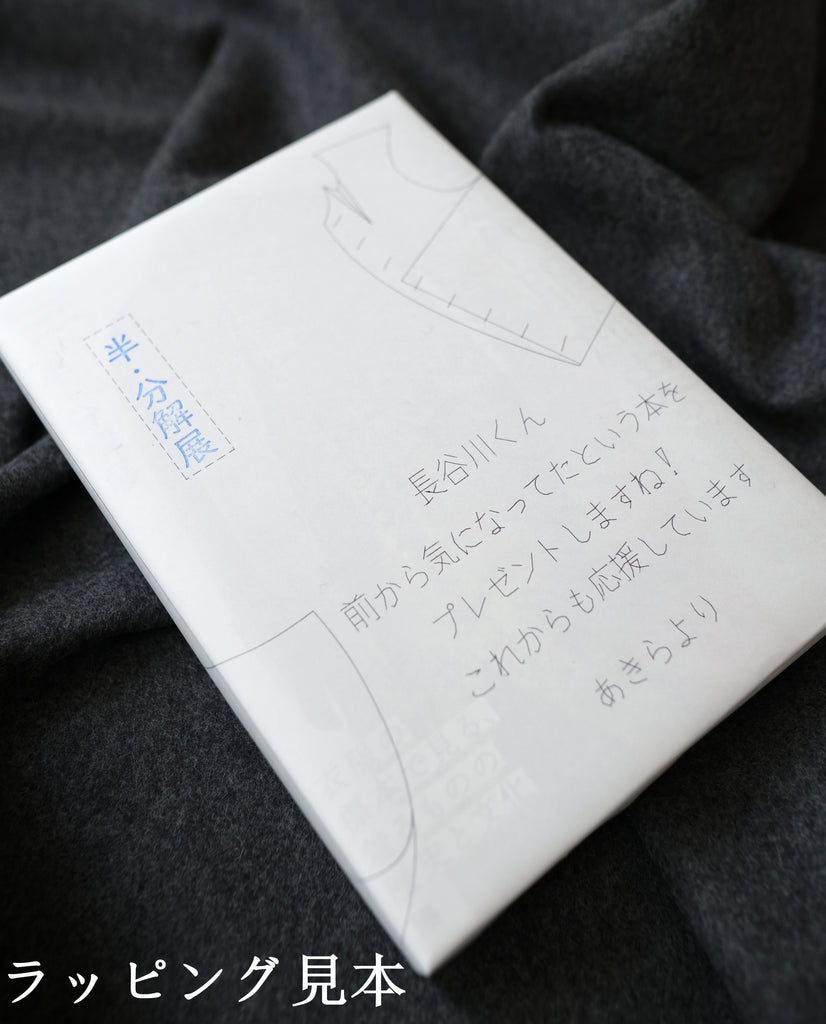 半・分解展
長谷川くん
前から気になってたという本を
プレゼントしますね!
これからも応援しています
あきらより
ラッピング見本